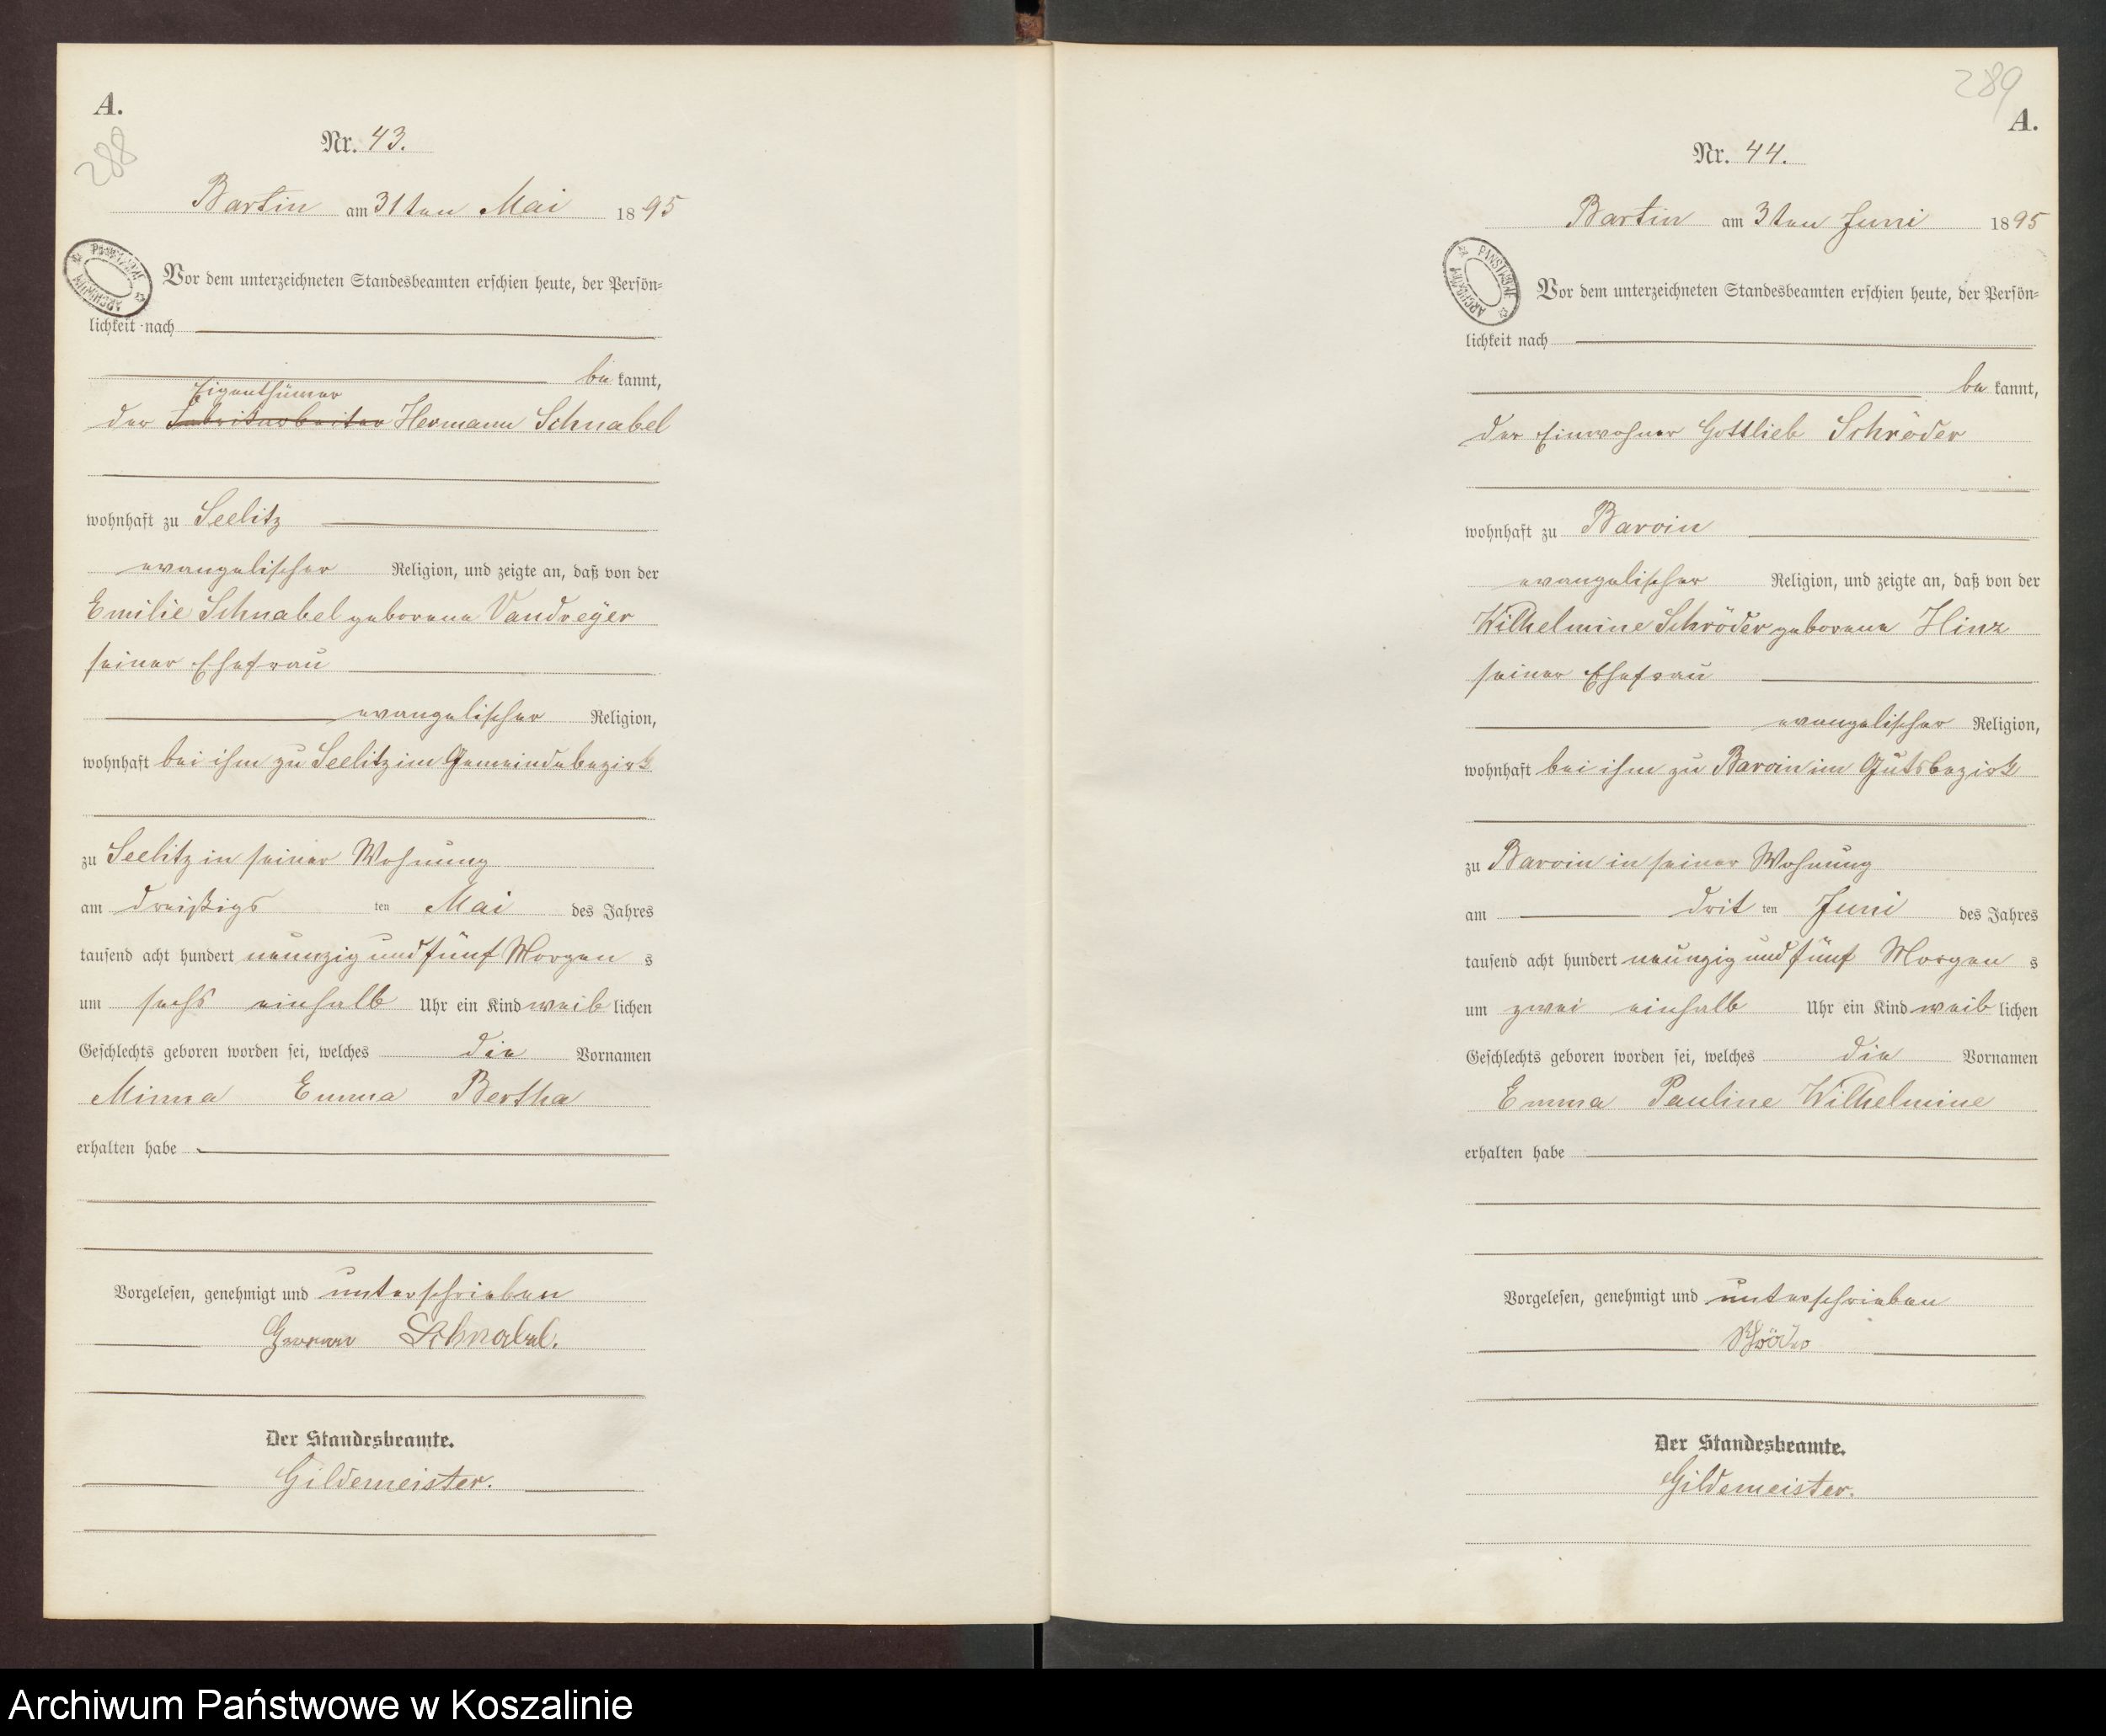 A.
288
Nr. 43.
Bartin am 31ten Mai 1895
PAŃSTWOWE ARCHIWUM
Vor dem unterzeichneten Standesbeamten erschien heute, der Persön-
lichkeit nach
be kannt,
Eigenthümer
der Fabrikarbeiter Hermann Schnabel
wohnhaft zu Seelitz
evangelischer Religion, und zeigte an, daß von der
Emilie Schnabel geborene Vandreÿer
seiner Ehefrau
evangelischer Religion,
wohnhaft bei ihm zu Seelitz im Gemeindebezirk
zu Seelitz in seiner Wohnung
am dreißigs ten Mai des Jahres
tausend acht hundert neunzig und fünf Morgen s
um sechs einhalb Uhr ein Kind weib lichen
Geschlechts geboren worden sei, welches die Vornamen
Minna Emma Bertha
erhalten habe
Vorgelesen, genehmigt und unterschrieben
Schnabel.
Der Standesbeamte.
Gildemeister.
289
A.
Nr. 44.
Bartin am 3ten Juni 1895
PAŃSTWOWE ARCHIWUM
Vor dem unterzeichneten Standesbeamten erschien heute, der Persön-
lichkeit nach
be kannt,
der Einwohner Gottlieb Schröder
wohnhaft zu Barvin
evangelischer Religion, und zeigte an, daß von der
Wilhelmine Schröder geborene Hinz
seiner Ehefrau
evangelischer Religion,
wohnhaft bei ihm zu Barvin im Gutsbezirk
zu Barvin in seiner Wohnung
am drit ten Juni des Jahres
tausend acht hundert neunzig und fünf Morgen s
um zwei einhalb Uhr ein Kind weib lichen
Geschlechts geboren worden sei, welches die Vornamen
Emma Pauline Wilhelmine
erhalten habe
Vorgelesen, genehmigt und unterschrieben
Der Standesbeamte.
Gildemeister.
Archiwum Państwowe w Koszalinie